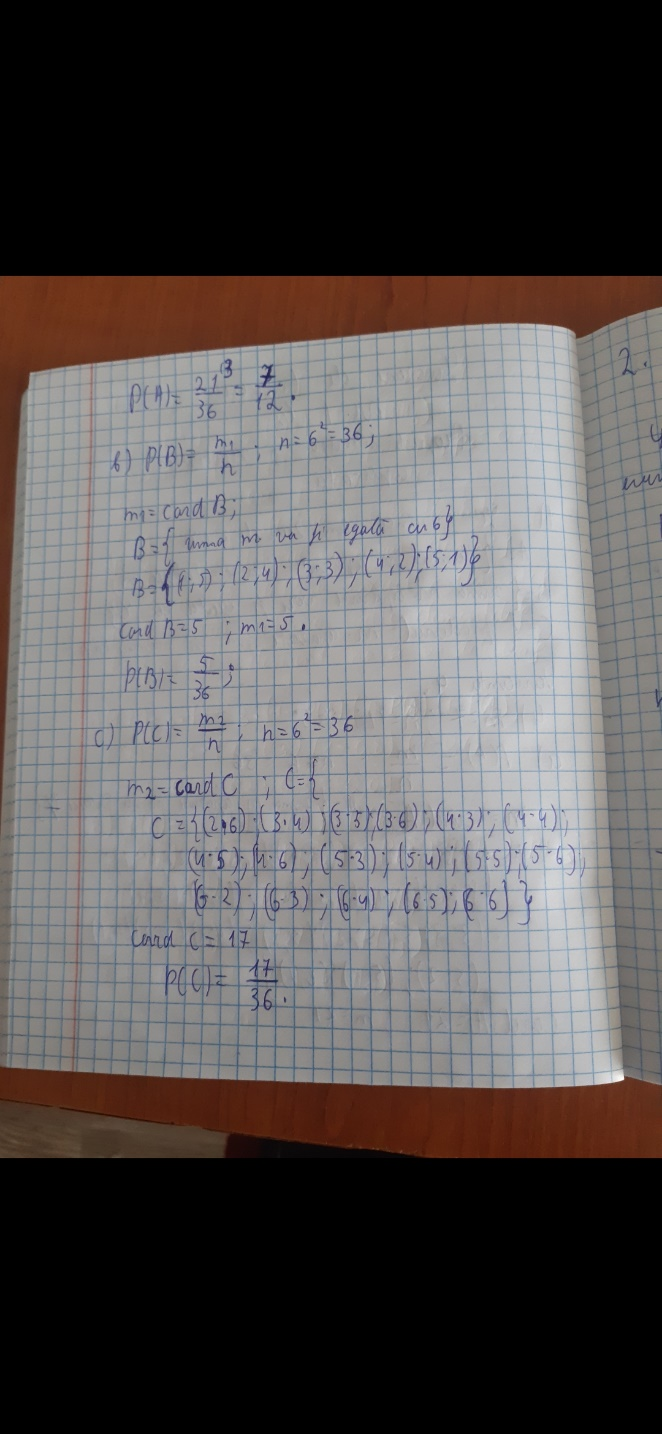 P(A)= 21/36 ^3 = 7/12.
b) P(B)= m1/n ; n=6²=36;
m1=card B;
B={ suma nr va fi egală cu 6}
B={(1;5);(2;4);(3;3);(4;2);(5;1)}
card B=5 ; m1=5.
P(B)= 5/36;
c) P(C)= m2/n ; n=6²=36
m2=card C ; C={
C={(2·6);(3·4);(3·5);(3·6);(4·3);(4·4);
(4·5);(4·6);(5·3);(5·4);(5·5);(5·6);
(6·2);(6·3);(6·4);(6·5);(6·6)}
card C=17
P(C)= 17/36.
2.